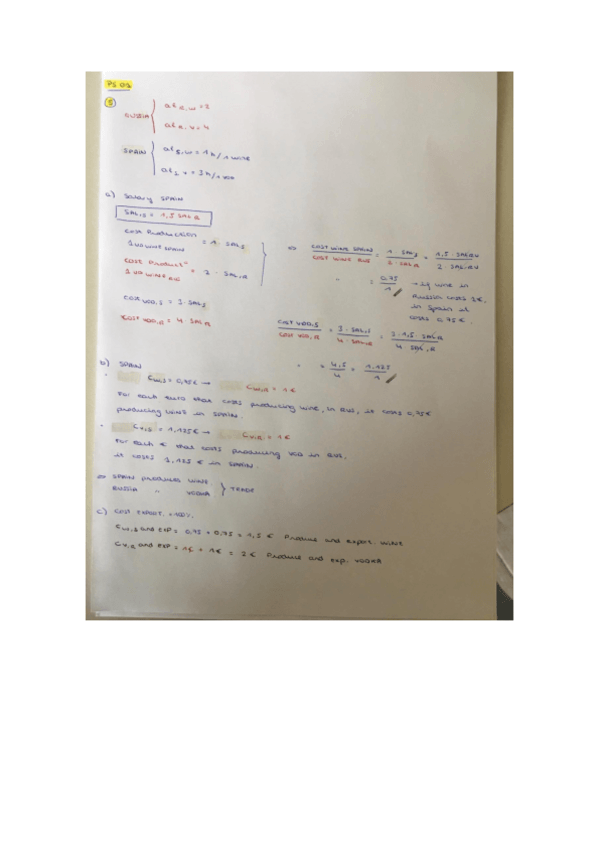 PS 03
5
RUSSIA
aL R,W = 2
aL R,V = 4
SPAIN
aL S,W = 1h/1 wine
aL S,V = 3h/1 vod
a) Salary SPAIN
SAL,S = 1,5 SAL R
Cost Production
1 va wine Spain = 1 · SAL S
Cost Product°
1 va wine Ru = 2 · SAL,R
⇒ COST WINE SPAIN / COST WINE RUS = 1 · SAL S / 2 · SAL R = 1,5 · SAL RU / 2 · SAL RU
" = 0,75 / 1 → if wine in
Russia costs 1€,
in Spain it
costs 0,75€.
Cost VOD,S = 3 · SAL S
Cost VOD,R = 4 · SAL R
COST VOD,S / COST VOD,R = 3 · SAL,S / 4 · SAL,R = 3 · 1,5 SAL,R / 4 SAL,R
" = 4,5 / 4 = 1,125 / 1
b) SPAIN
· C W,S = 0,75€ → C W,R = 1€
For each euro that costs producing wine, in Rus, it costs 0,75€
producing wine in Spain.
· C V,S = 1,125€ → C V,R = 1€
For each € that costs producing vod in Rus,
it costs 1,125 € in Spain.
⇒ SPAIN produces WINE
RUSSIA " VODKA } TRADE
c) COST EXPORT. = 100%.
C W,S and EXP = 0,75 + 0,75 = 1,5 € Produce and export. wine
C V,R and EXP = 1€ + 1€ = 2€ Produce and exp. vodka